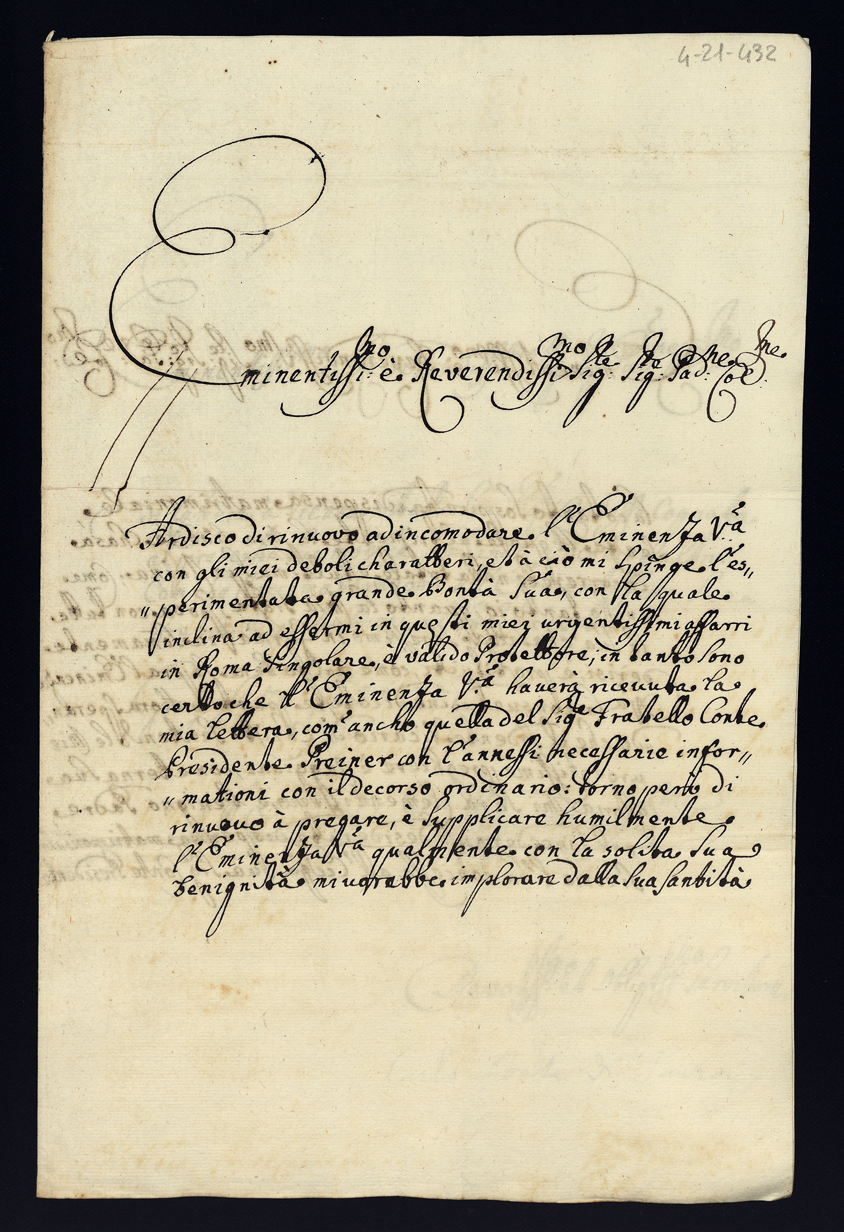 4-21-432
Eminentissi:mo è Reverendissi:mo Sig:re Sig:re Pad:ne Col:me
Ardisco di rinuovo ad incomodare l'Eminenza V.ra
con gli miei deboli charatteri, et à ciò mi spinge l'es„
„perimentata grande Bontà Sua, con la quale
inclina ad essermi in questi miei urgentissimi affarri
in Roma singolare, è valido Protettore; in tanto sono
certo che l'Eminenza V.ra haverà ricevuta la
mia lettera, com'ancho quella del Sig.r Fratello Conte
Presidente Preiner con l'annessi necessarie infor„
„mationi con il decorso ordinario: torno però di
rinuovo à pregare, è supplicare humilmente
l'Eminenza V.ra qualmente con la solita Sua
benignità mi vorebbe implorare dalla Sua Santità